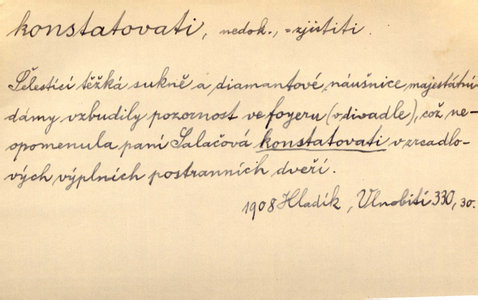 konstatovati, nedok., = zjistiti.
Šelestící těžká sukně a diamantové náušnice majestátní
dámy vzbudily pozornost ve foyeru (v divadle), což ne-
opomenula paní Salačová konstatovati v zrcadlo-
vých výplních postranních dveří.
1908 Hladík, Vlnobití 330, 30.